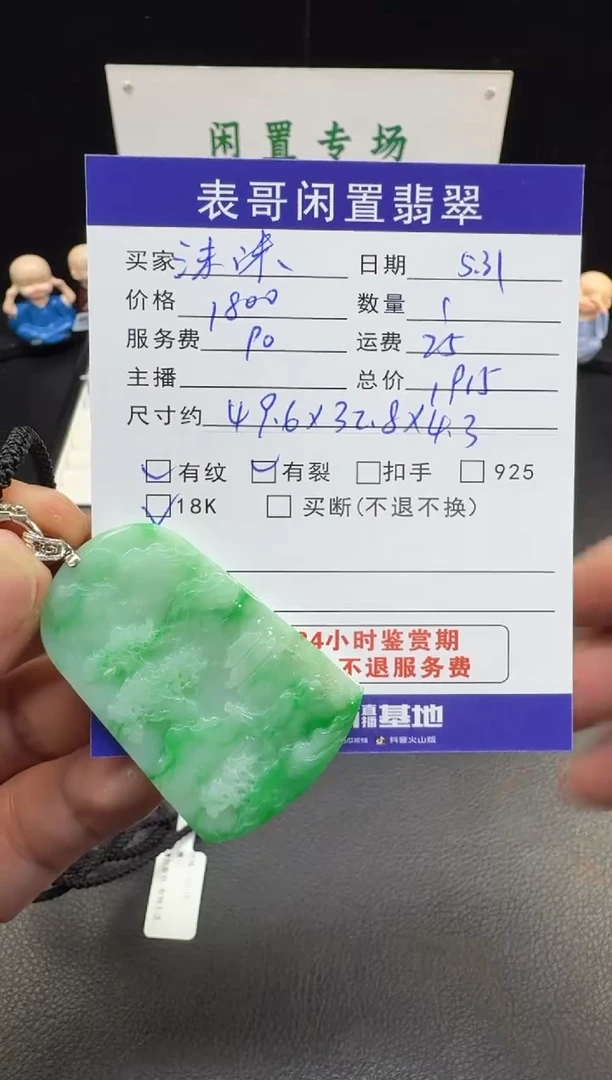 闲置专场
表哥闲置翡翠
买家 沫沫、 日期 5.31
价格 1800 数量 1
服务费 90 运费 25
主播 总价 1915
尺寸约 49.6×32.8×4.3
有纹 有裂 扣手 925
18K 买断(不退不换)
24小时鉴赏期
不退服务费
直播基地
抖音火山版